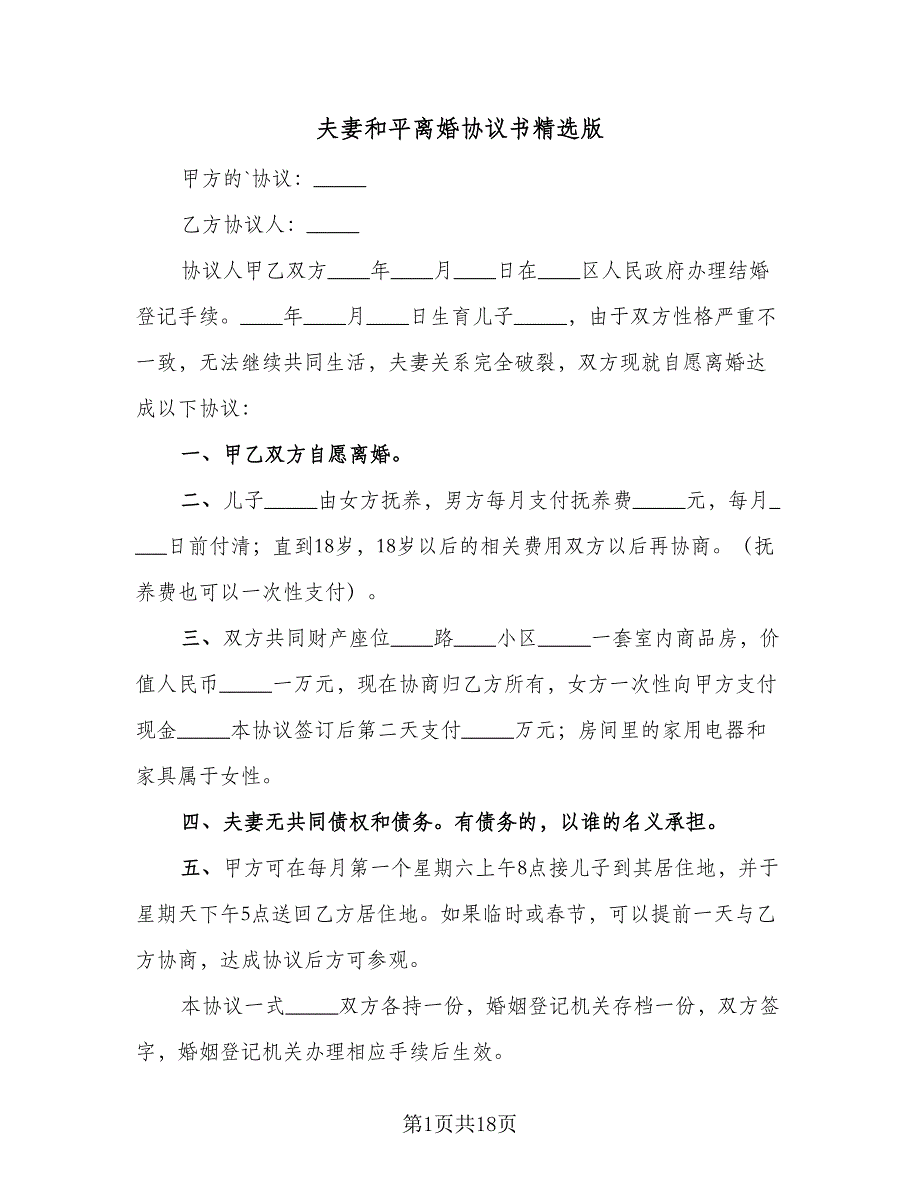 夫妻和平离婚协议书精选版
甲方的`协议：_____
乙方协议人：_____
协议人甲乙双方____年____月____日在____区人民政府办理结婚
登记手续。____年____月____日生育儿子_____，由于双方性格严重不
一致，无法继续共同生活，夫妻关系完全破裂，双方现就自愿离婚达
成以下协议：
一、甲乙双方自愿离婚。
二、儿子_____由女方抚养，男方每月支付抚养费_____元，每月_
___日前付清；直到18岁，18岁以后的相关费用双方以后再协商。（抚
养费也可以一次性支付）。
三、双方共同财产座位____路____小区_____一套室内商品房，价
值人民币_____一万元，现在协商归乙方所有，女方一次性向甲方支付
现金_____本协议签订后第二天支付_____万元；房间里的家用电器和
家具属于女性。
四、夫妻无共同债权和债务。有债务的，以谁的名义承担。
五、甲方可在每月第一个星期六上午8点接儿子到其居住地，并于
星期天下午5点送回乙方居住地。如果临时或春节，可以提前一天与乙
方协商，达成协议后方可参观。
本协议一式_____双方各持一份，婚姻登记机关存档一份，双方签
字，婚姻登记机关办理相应手续后生效。
第1页共18页